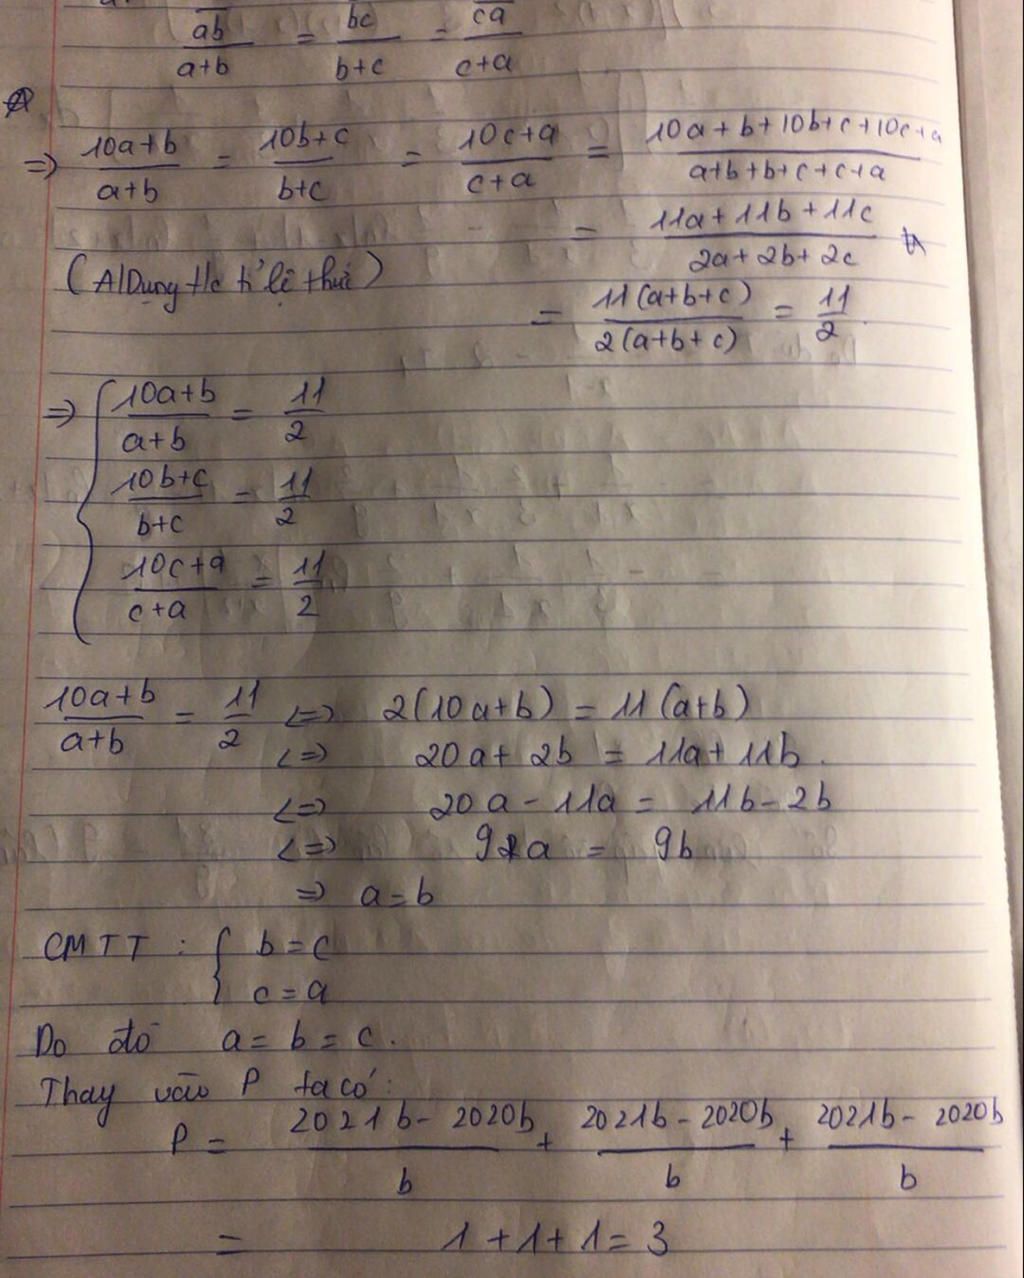 ab/a+b = bc/b+c = ca/c+a
=> 10a+b/a+b = 10b+c/b+c = 10c+a/c+a = 10a+b+10b+c+10c+a/a+b+b+c+c+a
= 11a+11b+11c/2a+2b+2c
(A/Dụng t/c tỉ lệ thức)
= 11(a+b+c)/2(a+b+c) = 11/2.
=> { 10a+b/a+b = 11/2
10b+c/b+c = 11/2
10c+a/c+a = 11/2
10a+b/a+b = 11/2 <=> 2(10a+b) = 11(a+b)
<=> 20a+2b = 11a+11b.
<=> 20a-11a = 11b-2b
<=> 9a = 9b
=> a=b
CMTT : { b=c
c=a
Do đó a=b=c.
Thay vào P ta có:
P = 2021b-2020b/b + 2021b-2020b/b + 2021b-2020b/b
= 1+1+1=3